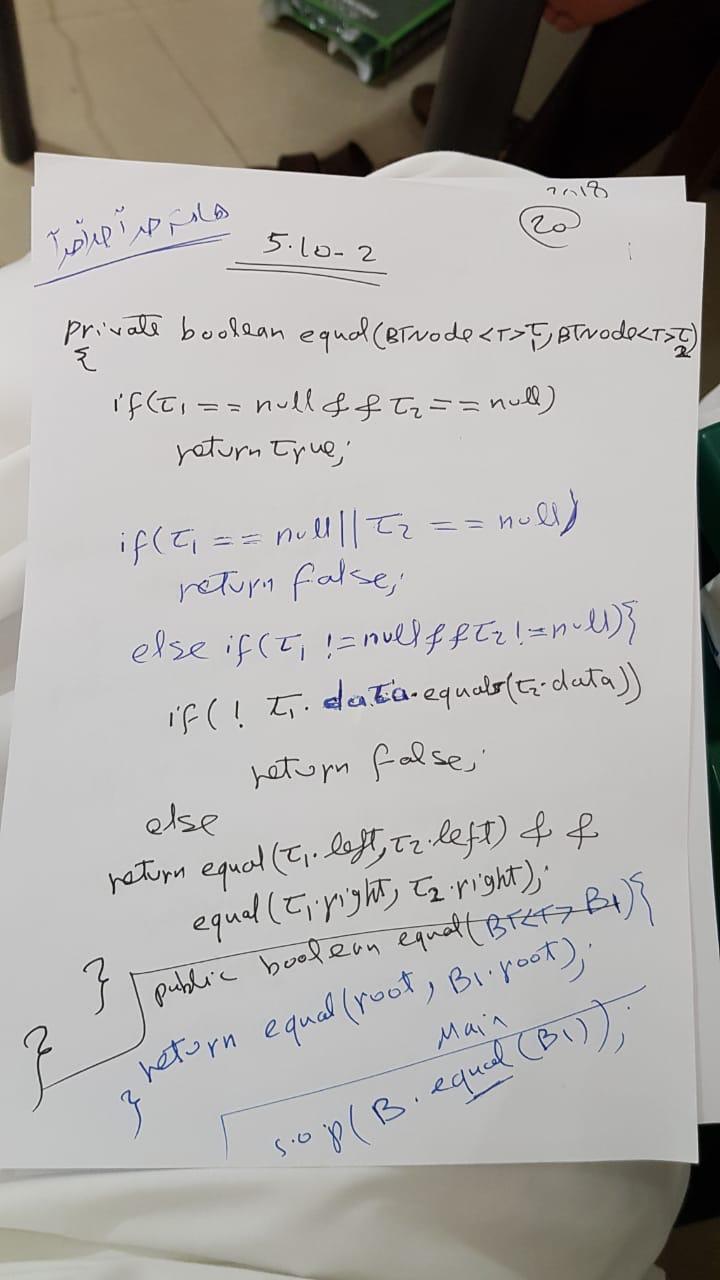 2018
20
5.10-2
هام جداً جداً جداً
private boolean equal(BTNode<T>T1, BTNode<T>T2)
{
if(T1 == null && T2 == null)
return True;
if(T1 == null || T2 == null)
return false;
else if(T1 != null && T2 != null){
if(! T1.data.equals(T2.data))
return false;
else
return equal(T1.left, T2.left) &&
equal(T1.right, T2.right);
}
}
public boolean equal(BT<T> B1){
return equal(root, B1.root);
}
Main
s.o.p(B.equal(B1));